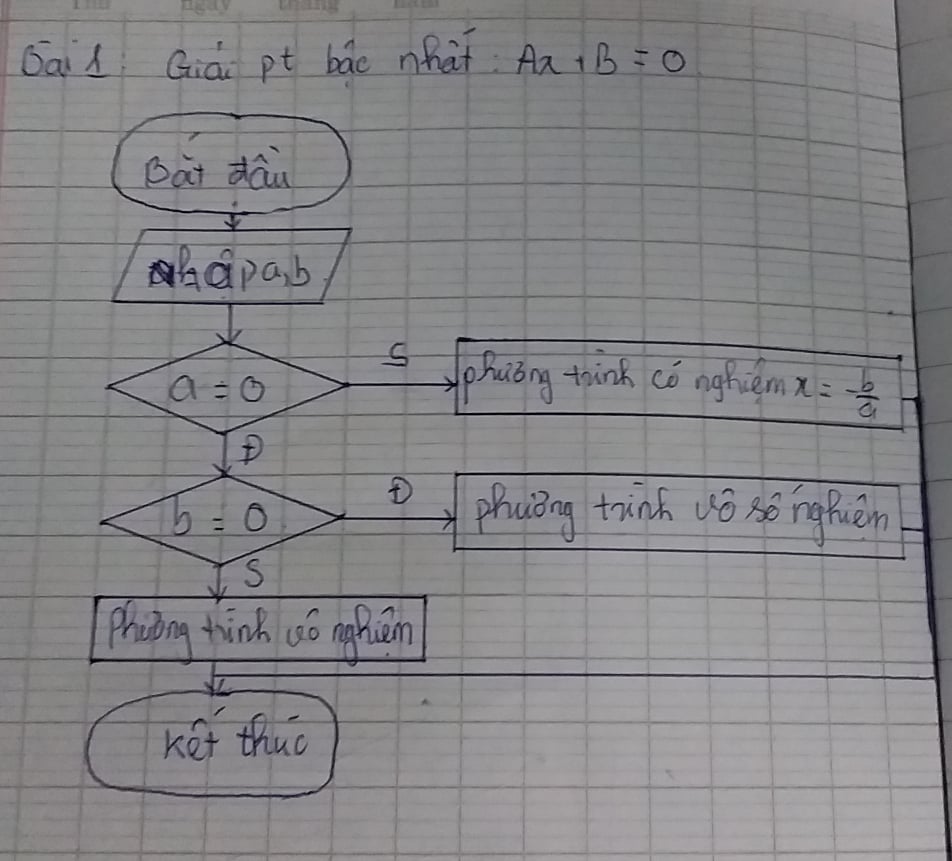 Bài 1: Giải pt bậc nhất: Ax + B = 0
Bắt đầu
nhập a,b
a = 0
S
phương trình có nghiệm x = -b/a
Đ
b = 0
Đ
phương trình vô số nghiệm
S
Phương trình vô nghiệm
Kết thúc